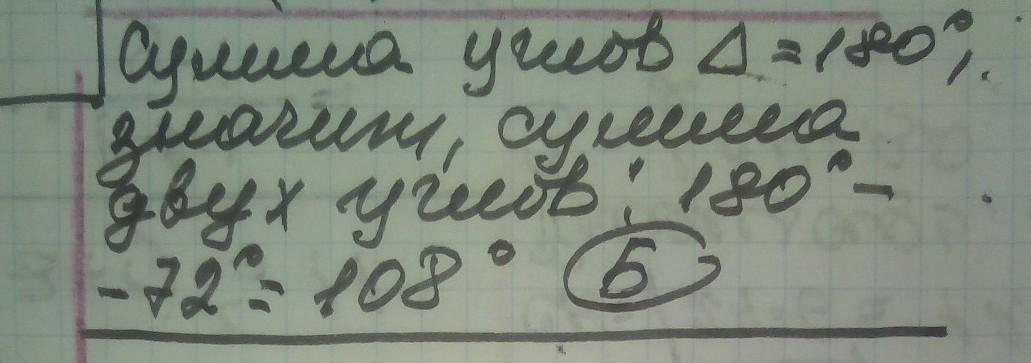 Сумма углов Δ = 180°,
значит, сумма
двух углов: 180° -
- 72° = 108° Б